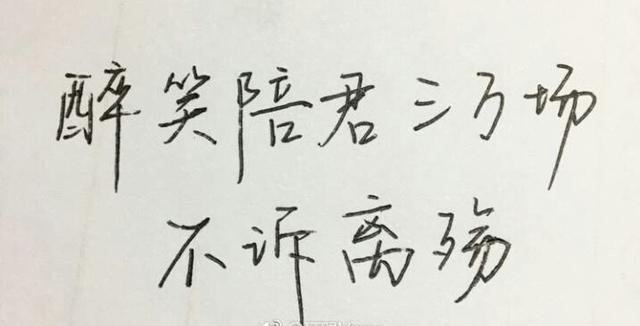 醉笑陪君三万场
不诉离殇